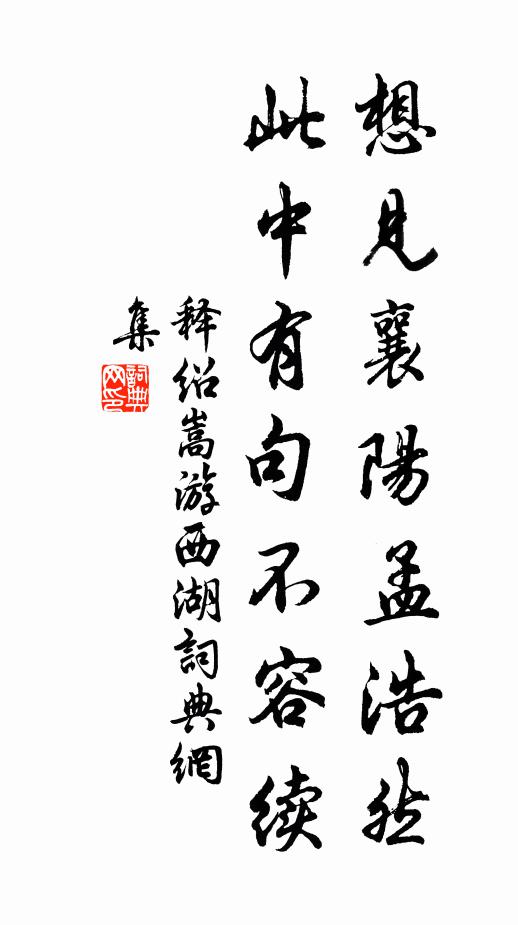 想見襄陽孟浩然
此中有句不容續
释绍嵩游西湖詞典網
集
詞典网印